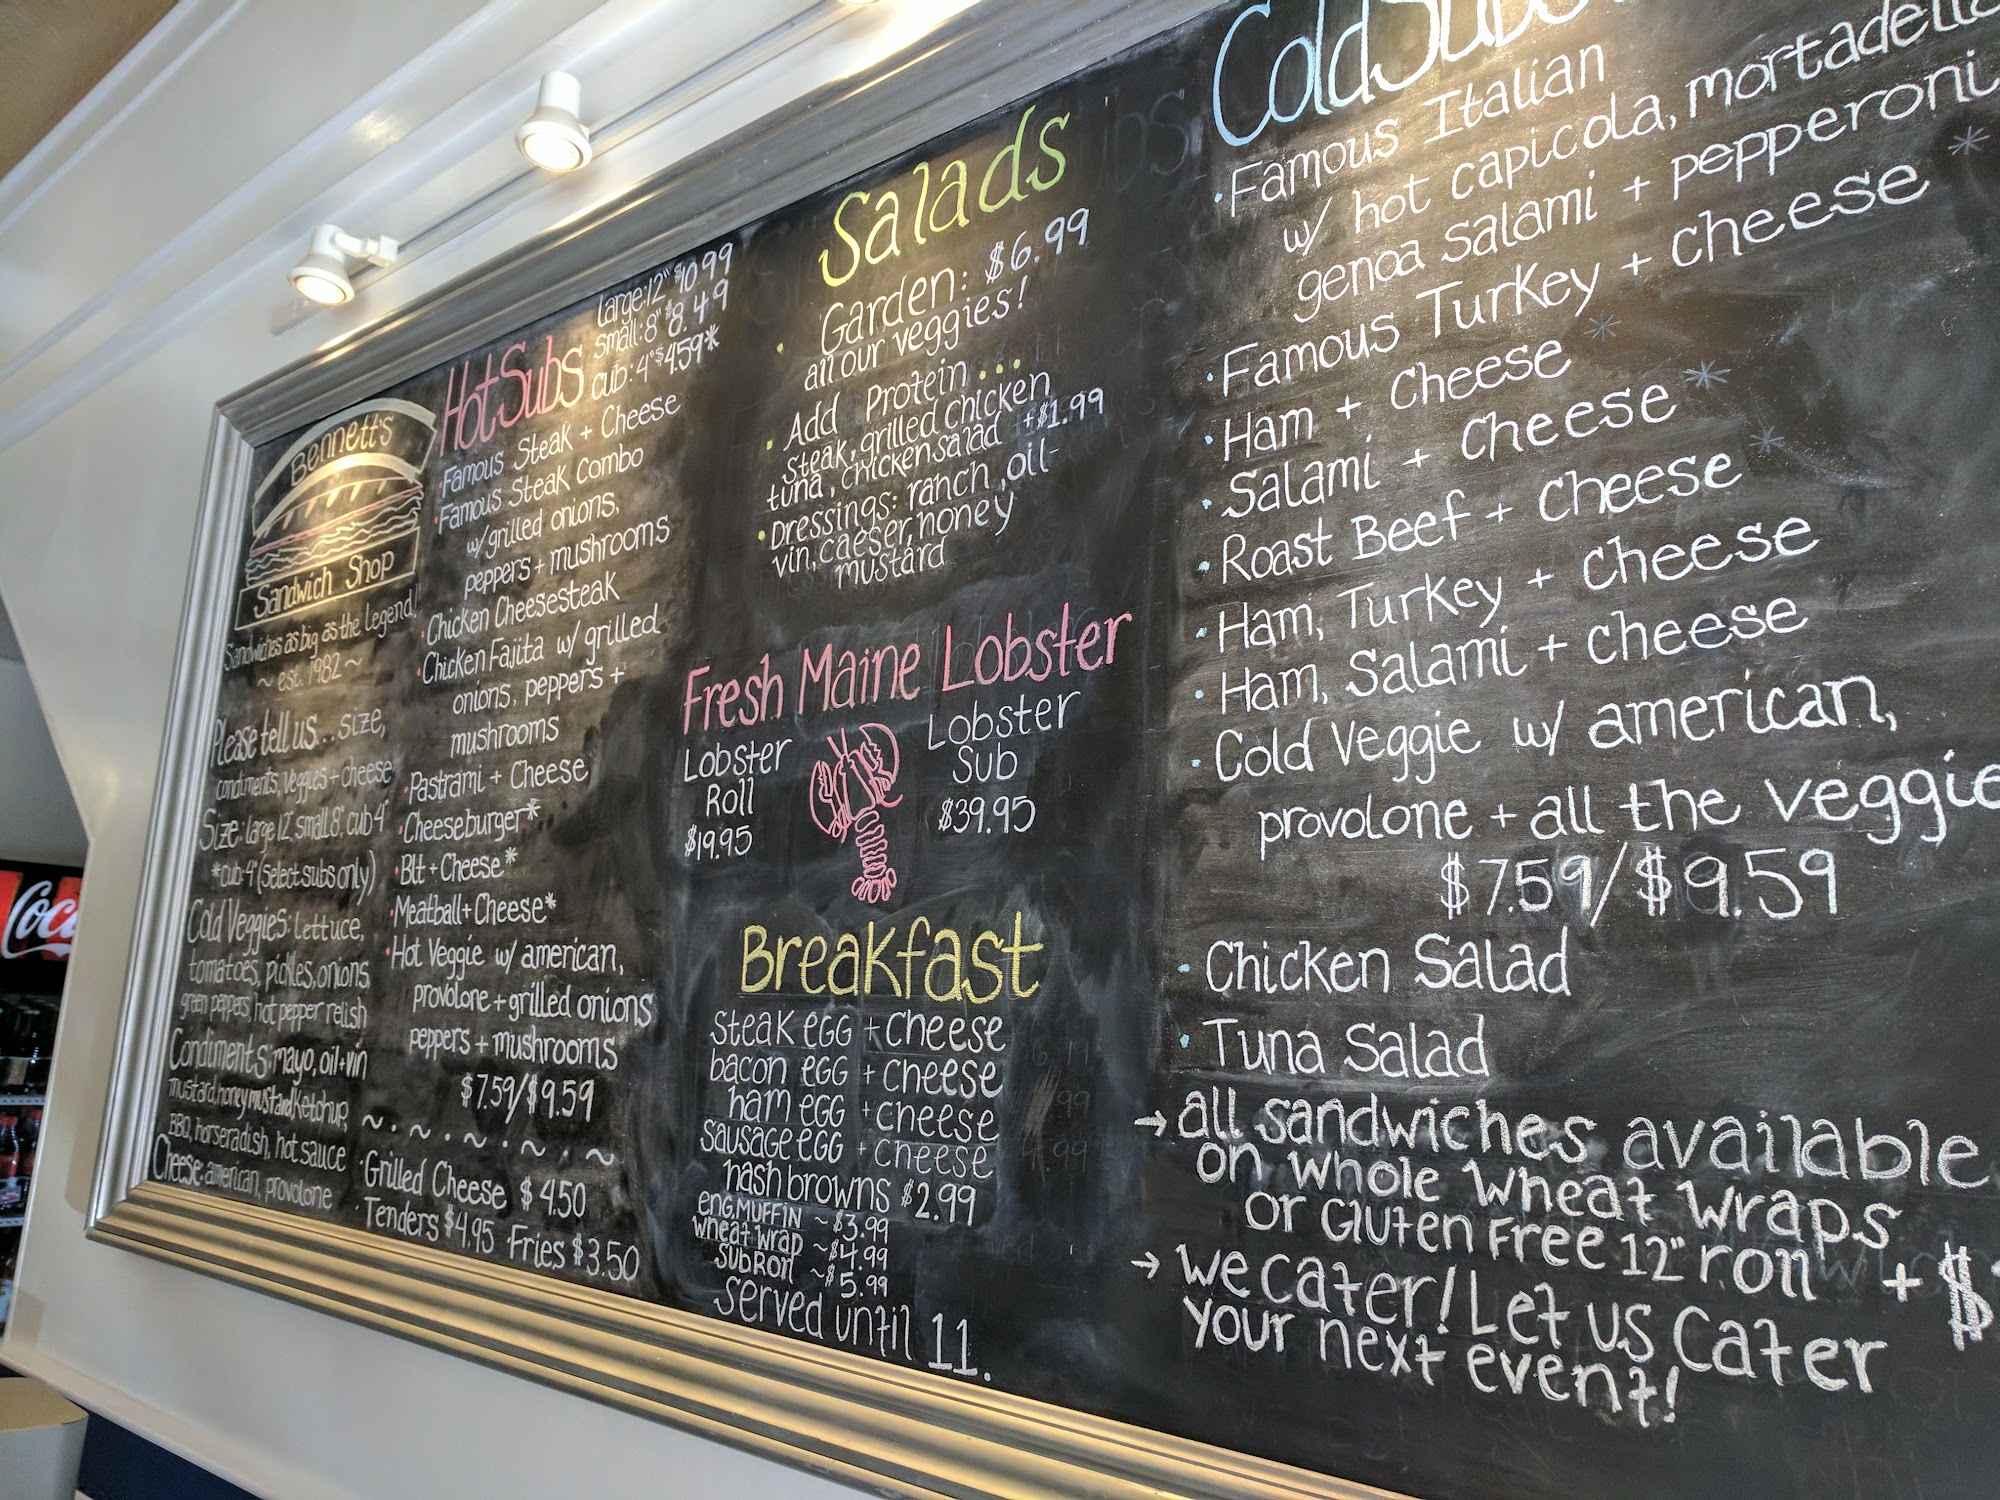 Bennett's
Sandwich Shop
Sandwiches as big as the legend!
~ est. 1982 ~
Please tell us...size,
condiments, veggies + cheese
Size: large 12", small 8", cub 4"
*cub: 4" (Select subs only)
Cold Veggies: lettuce,
tomatoes, pickles, onions,
green peppers, hot pepper relish
Condiments: mayo, oil + vin
mustard, honey mustard, ketchup,
BBQ, horseradish, hot sauce
Cheese: american, provolone
Hot Subs
large: 12" $10.99
small: 8" $8.49
cub: 4" $4.59*
·Famous Steak + Cheese
·Famous Steak Combo
w/ grilled onions,
peppers + mushrooms
·Chicken Cheesesteak
·Chicken Fajita w/ grilled
onions, peppers +
mushrooms
·Pastrami + Cheese
·Cheeseburger*
·Blt + Cheese*
·Meatball + Cheese*
·Hot Veggie w/ american,
provolone + grilled onions
peppers + mushrooms
$7.59/$9.59
~·~·~·~·~
·Grilled Cheese $4.50
·Tenders $4.95 ·Fries $3.50
Salads
·Garden: $6.99
all our veggies!
·Add Protein...
steak, grilled chicken
tuna, chicken salad +$1.99
·Dressings: ranch, oil-
vin, caeser, honey
mustard
Fresh Maine Lobster
Lobster
Roll
$19.95
Lobster
Sub
$39.95
Breakfast
steak egg + cheese
bacon egg + cheese
ham egg + cheese
sausage egg + cheese
hash browns $2.99
eng. muffin ~ $3.99
wheat wrap ~ $4.99
sub roll ~ $5.99
served until 11.
Cold Subs
·Famous Italian
w/ hot capicola, mortadella
genoa salami + pepperoni
·Famous Turkey + cheese *
·Ham + Cheese *
·Salami + Cheese *
·Roast Beef + Cheese *
·Ham, Turkey + Cheese
·Ham, Salami + cheese
·Cold Veggie w/ american,
provolone + all the veggie
$7.59/$9.59
·Chicken Salad
·Tuna Salad
→ all sandwiches available
on whole wheat wraps
or Gluten Free 12" roll + $
→ we cater! Let us cater
your next event!
Coca